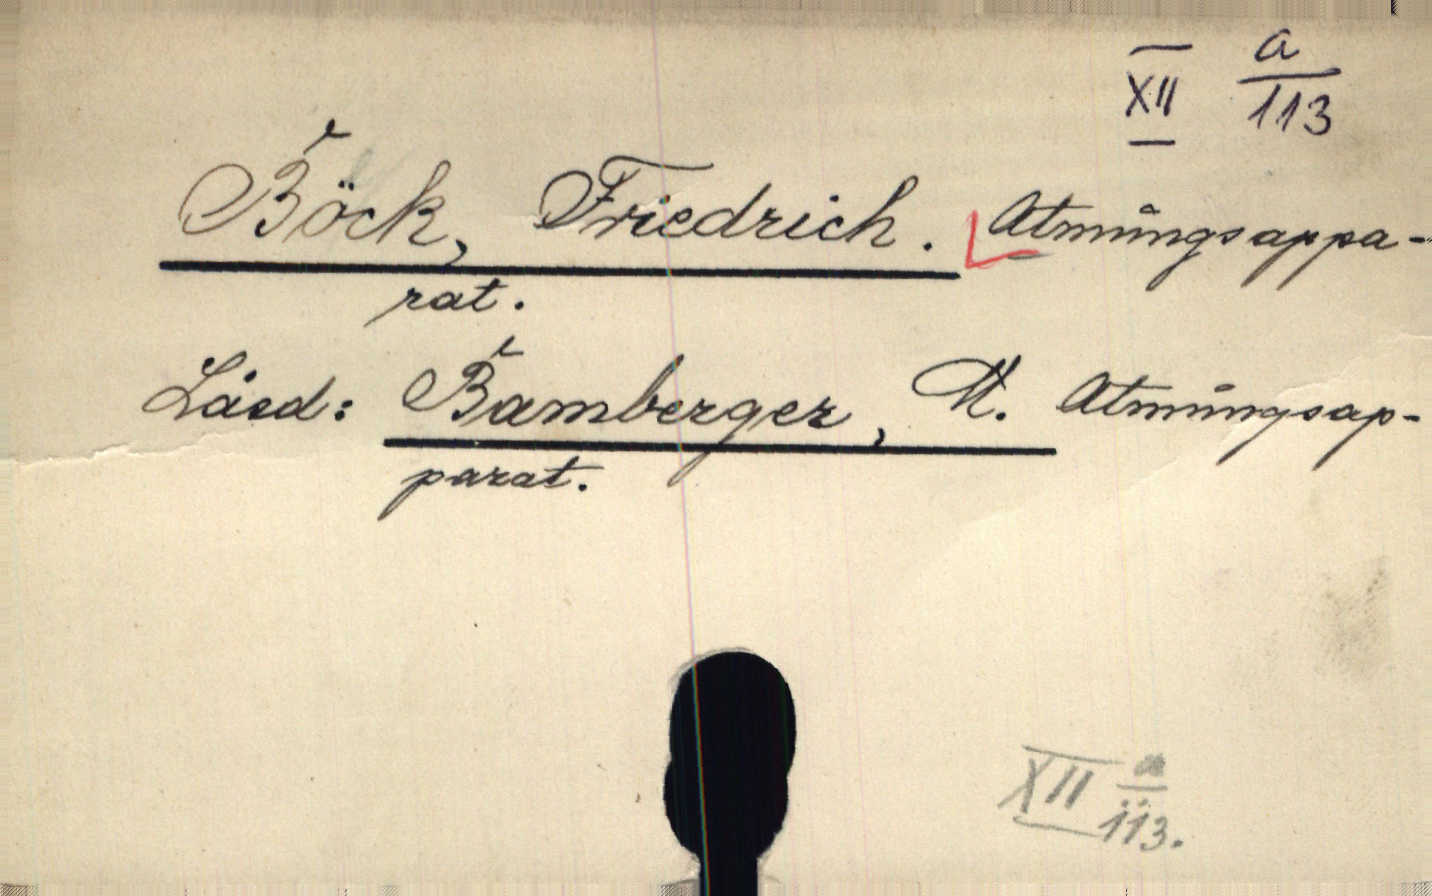 XII a/113
Böck, Friedrich. Atmungsappa-
rat.
Lásd: Bamberger, M. Atmungsap-
parat.
XII a/113.